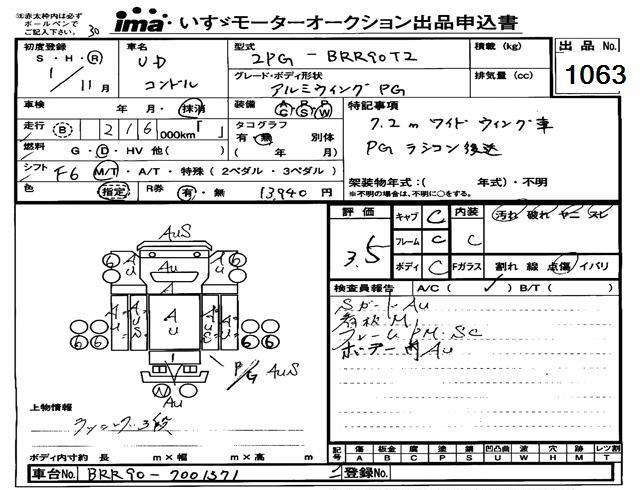 ima いすゞモーターオークション出品申込書
初度登録 S・H・R 1/11月
車名 UD コンドル
型式 2PG-BRR90T2
積載(kg)
出品No. 1063
グレード・ボディ形状 アルミウィングPG
排気量(cc)
車検 年 月・抹消
装備
走行 B 216 000km「 」
タコグラフ 有・無 別体
( 年 月)
燃料 G・D・HV 他( )
特記事項
7.2m ワイド ウィング車
PG ラジコン後送
シフト F6 M/T・A/T・特殊(2ペダル・3ペダル)
架装物年式:( 年式)・不明
※不明の場合は、不明に○をする。
色 指定 R券 有・無 13,940円
評価 3.5
キャブ C
フレーム C
ボディ C
内装 C
汚れ 破れ ヤニ スレ
Fガラス 割れ 線 点傷 イバリ
検査員報告 A/C( ✓ ) B/T( )
Sガードーパ AU
看板M
フレームPM.SC
ボデー内AU
AuS
Au
P/G AuS
Au
上物情報
ラッシング3段
ボディ内寸約 長 m×幅 m×高 m
記号 傷 A 板金 B 腐 C 塗 P 錆 S 凹凸曲 U 波 W 穴 H 跡 M レツ割 T
車台No. BRR90-7001371
登録No.